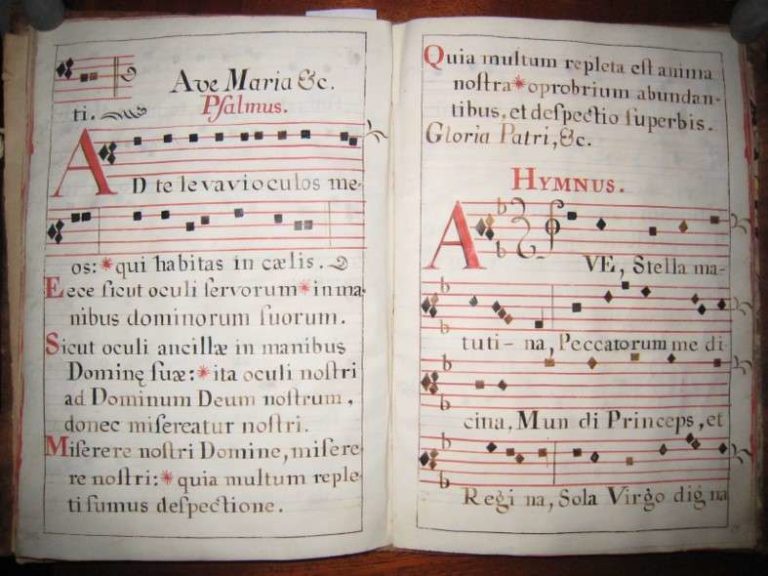 Ave Maria &c.
ti.
Psalmus.
AD te levavi oculos me-
os: * qui habitas in cælis.
Ecce sicut oculi servorum * in ma-
nibus dominorum suorum.
Sicut oculi ancillæ in manibus
Dominę suæ: * ita oculi nostri
ad Dominum Deum nostrum,
donec misereatur nostri.
Miserere nostri Domine, misere-
re nostri: * quia multum reple-
ti sumus despectione.
Quia multum repleta est anima
nostra * oprobrium abundan-
tibus, et despectio superbis.
Gloria Patri, &c.
HYMNUS.
AVE, Stella ma-
tuti - na, Peccatorum me di
cina, Mun di Princeps, et
Regi na, Sola Virgo dig na